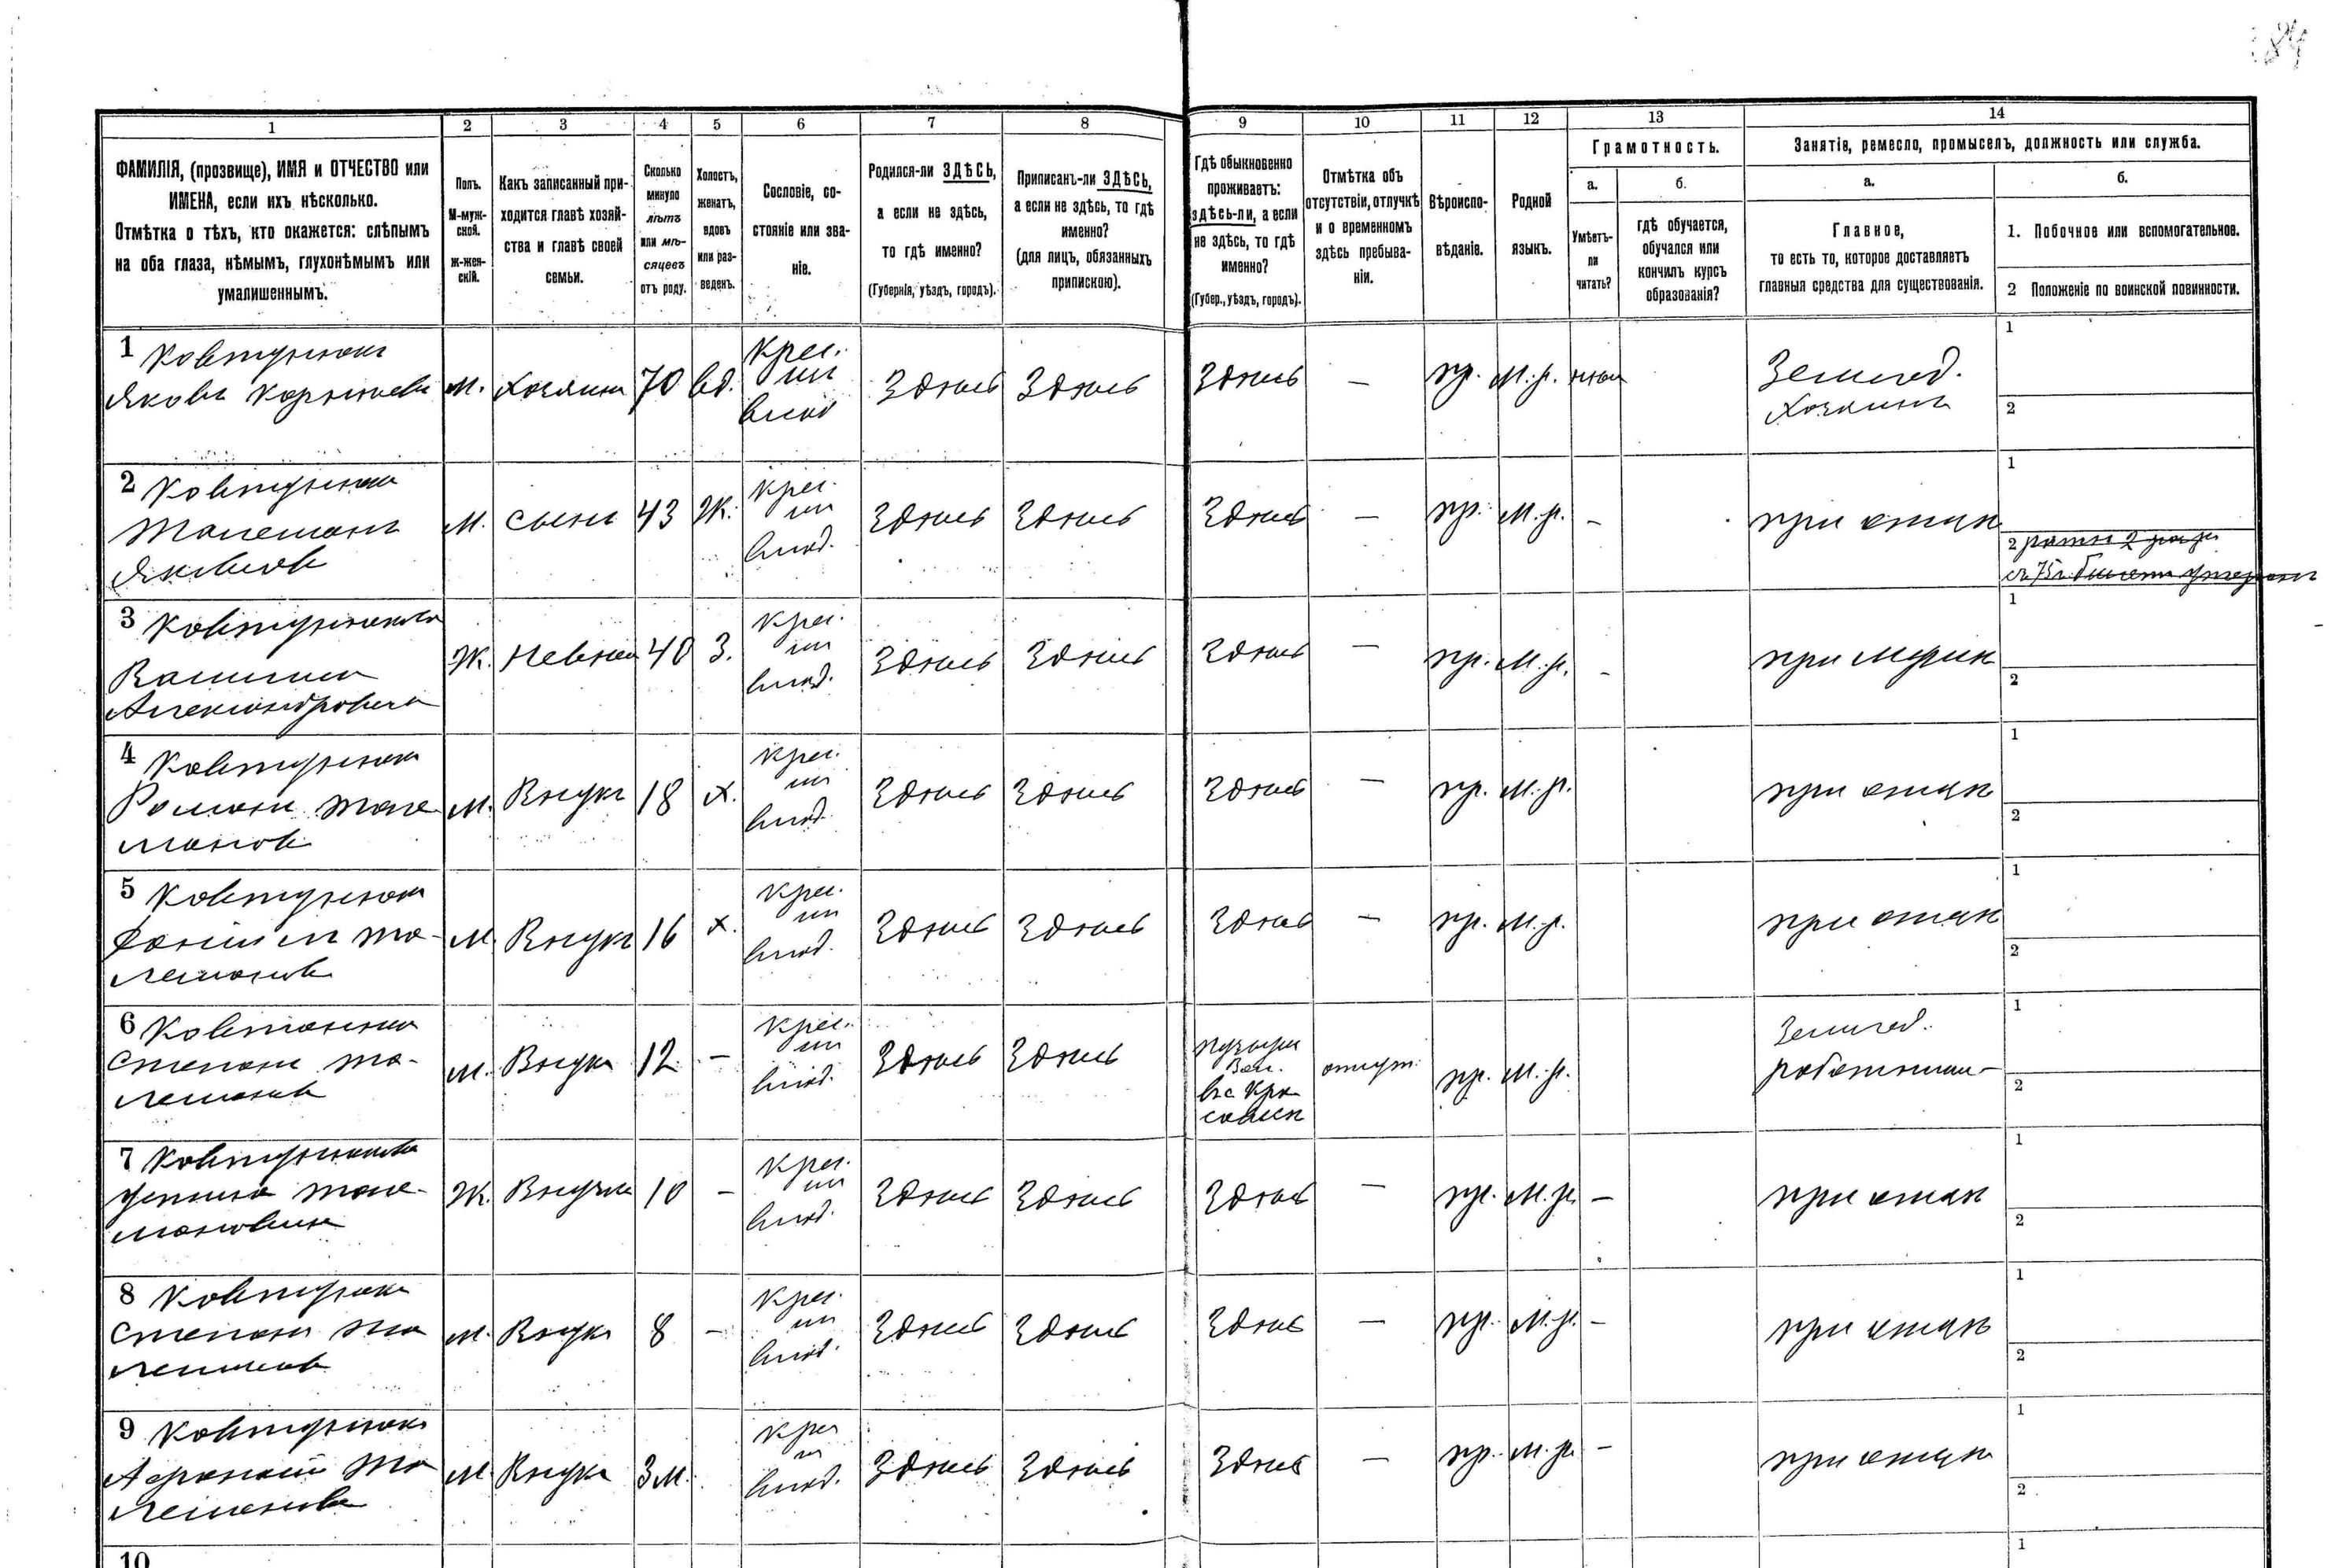 84
1 2 3 4 5 6 7 8 9 10 11 12 13 14
ФАМИЛІЯ, (прозвище), ИМЯ и ОТЧЕСТВО или
ИМЕНА, если ихъ нѣсколько.
Отмѣтка о тѣхъ, кто окажется: слѣпымъ
на оба глаза, нѣмымъ, глухонѣмымъ или
умалишеннымъ.
Полъ.
М-муж-
ской.
Ж-жен-
скій.
Какъ записанный при-
ходится главѣ хозяй-
ства и главѣ своей
семьи.
Сколько
минуло
лѣтъ
или мѣ-
сяцевъ
отъ роду.
Холостъ,
женатъ,
вдовъ
или раз-
веденъ.
Сословіе, со-
стояніе или зва-
ніе.
Родился-ли ЗДѢСЬ,
а если не здѣсь,
то гдѣ именно?
(Губернія, уѣздъ, городъ).
Приписанъ-ли ЗДѢСЬ,
а если не здѣсь, то гдѣ
именно?
(для лицъ, обязанныхъ
припискою).
Гдѣ обыкновенно
проживаетъ:
здѣсь-ли, а если
не здѣсь, то гдѣ
именно?
(Губер., уѣздъ, городъ).
Отмѣтка объ
отсутствіи, отлучкѣ
и о временномъ
здѣсь пребыва-
ніи.
Вѣроиспо-
вѣданіе.
Родной
языкъ.
Грамотность.
а.
Умѣетъ-
ли
читать?
б.
гдѣ обучается,
обучался или
кончилъ курсъ
образованія?
Занятіе, ремесло, промыселъ, должность или служба.
а.
Главное,
то есть то, которое доставляетъ
главныя средства для существованія.
б.
1. Побочное или вспомогательное.
2 Положеніе по воинской повинности.
1 Ковтунюкъ
Яковъ Корнѣевъ
М. Хозяинъ 70 вд.
Крес.
из
влад
Здѣсь Здѣсь Здѣсь — пр. М.р. нѣт
Землед.
Хозяинъ
1
2
2 Ковтунюкъ
Яковлевъ
М. сынъ 43 Ж.
Крес.
из
влад.
Здѣсь Здѣсь Здѣсь — пр. М.р. — при отцѣ
1
2
3
Александровна
Ж. Невѣст 40 З.
Крес.
из
влад.
Здѣсь Здѣсь Здѣсь — пр. М.р. — при мужѣ
1
2
4 Ковтунюкъ
Романъ
М. Внукъ 18 х.
Крес.
из
влад.
Здѣсь Здѣсь Здѣсь — пр. М.р. при отцѣ
1
2
5 Ковтунюкъ
М. Внукъ 16 х.
Крес.
из
влад.
Здѣсь Здѣсь Здѣсь — пр. М.р. при отцѣ
1
2
6
Степанъ
М. Внукъ 12 —
Крес.
из
влад.
Здѣсь Здѣсь
Вол.
пр. М.р.
Землед.
работник
1
2
7
Ж. Внучка 10 —
Крес.
из
влад.
Здѣсь Здѣсь Здѣсь — пр. М.р. — при отцѣ
1
2
8 Ковтунюкъ
Степанъ
М. Внукъ 8 —
Крес.
из
влад.
Здѣсь Здѣсь Здѣсь — пр. М.р. — при отцѣ
1
2
9 Ковтунюкъ
М. Внукъ 3 м.
Крес
из
влад.
Здѣсь Здѣсь Здѣсь — пр. М.р. — при отцѣ
1
2
10
1